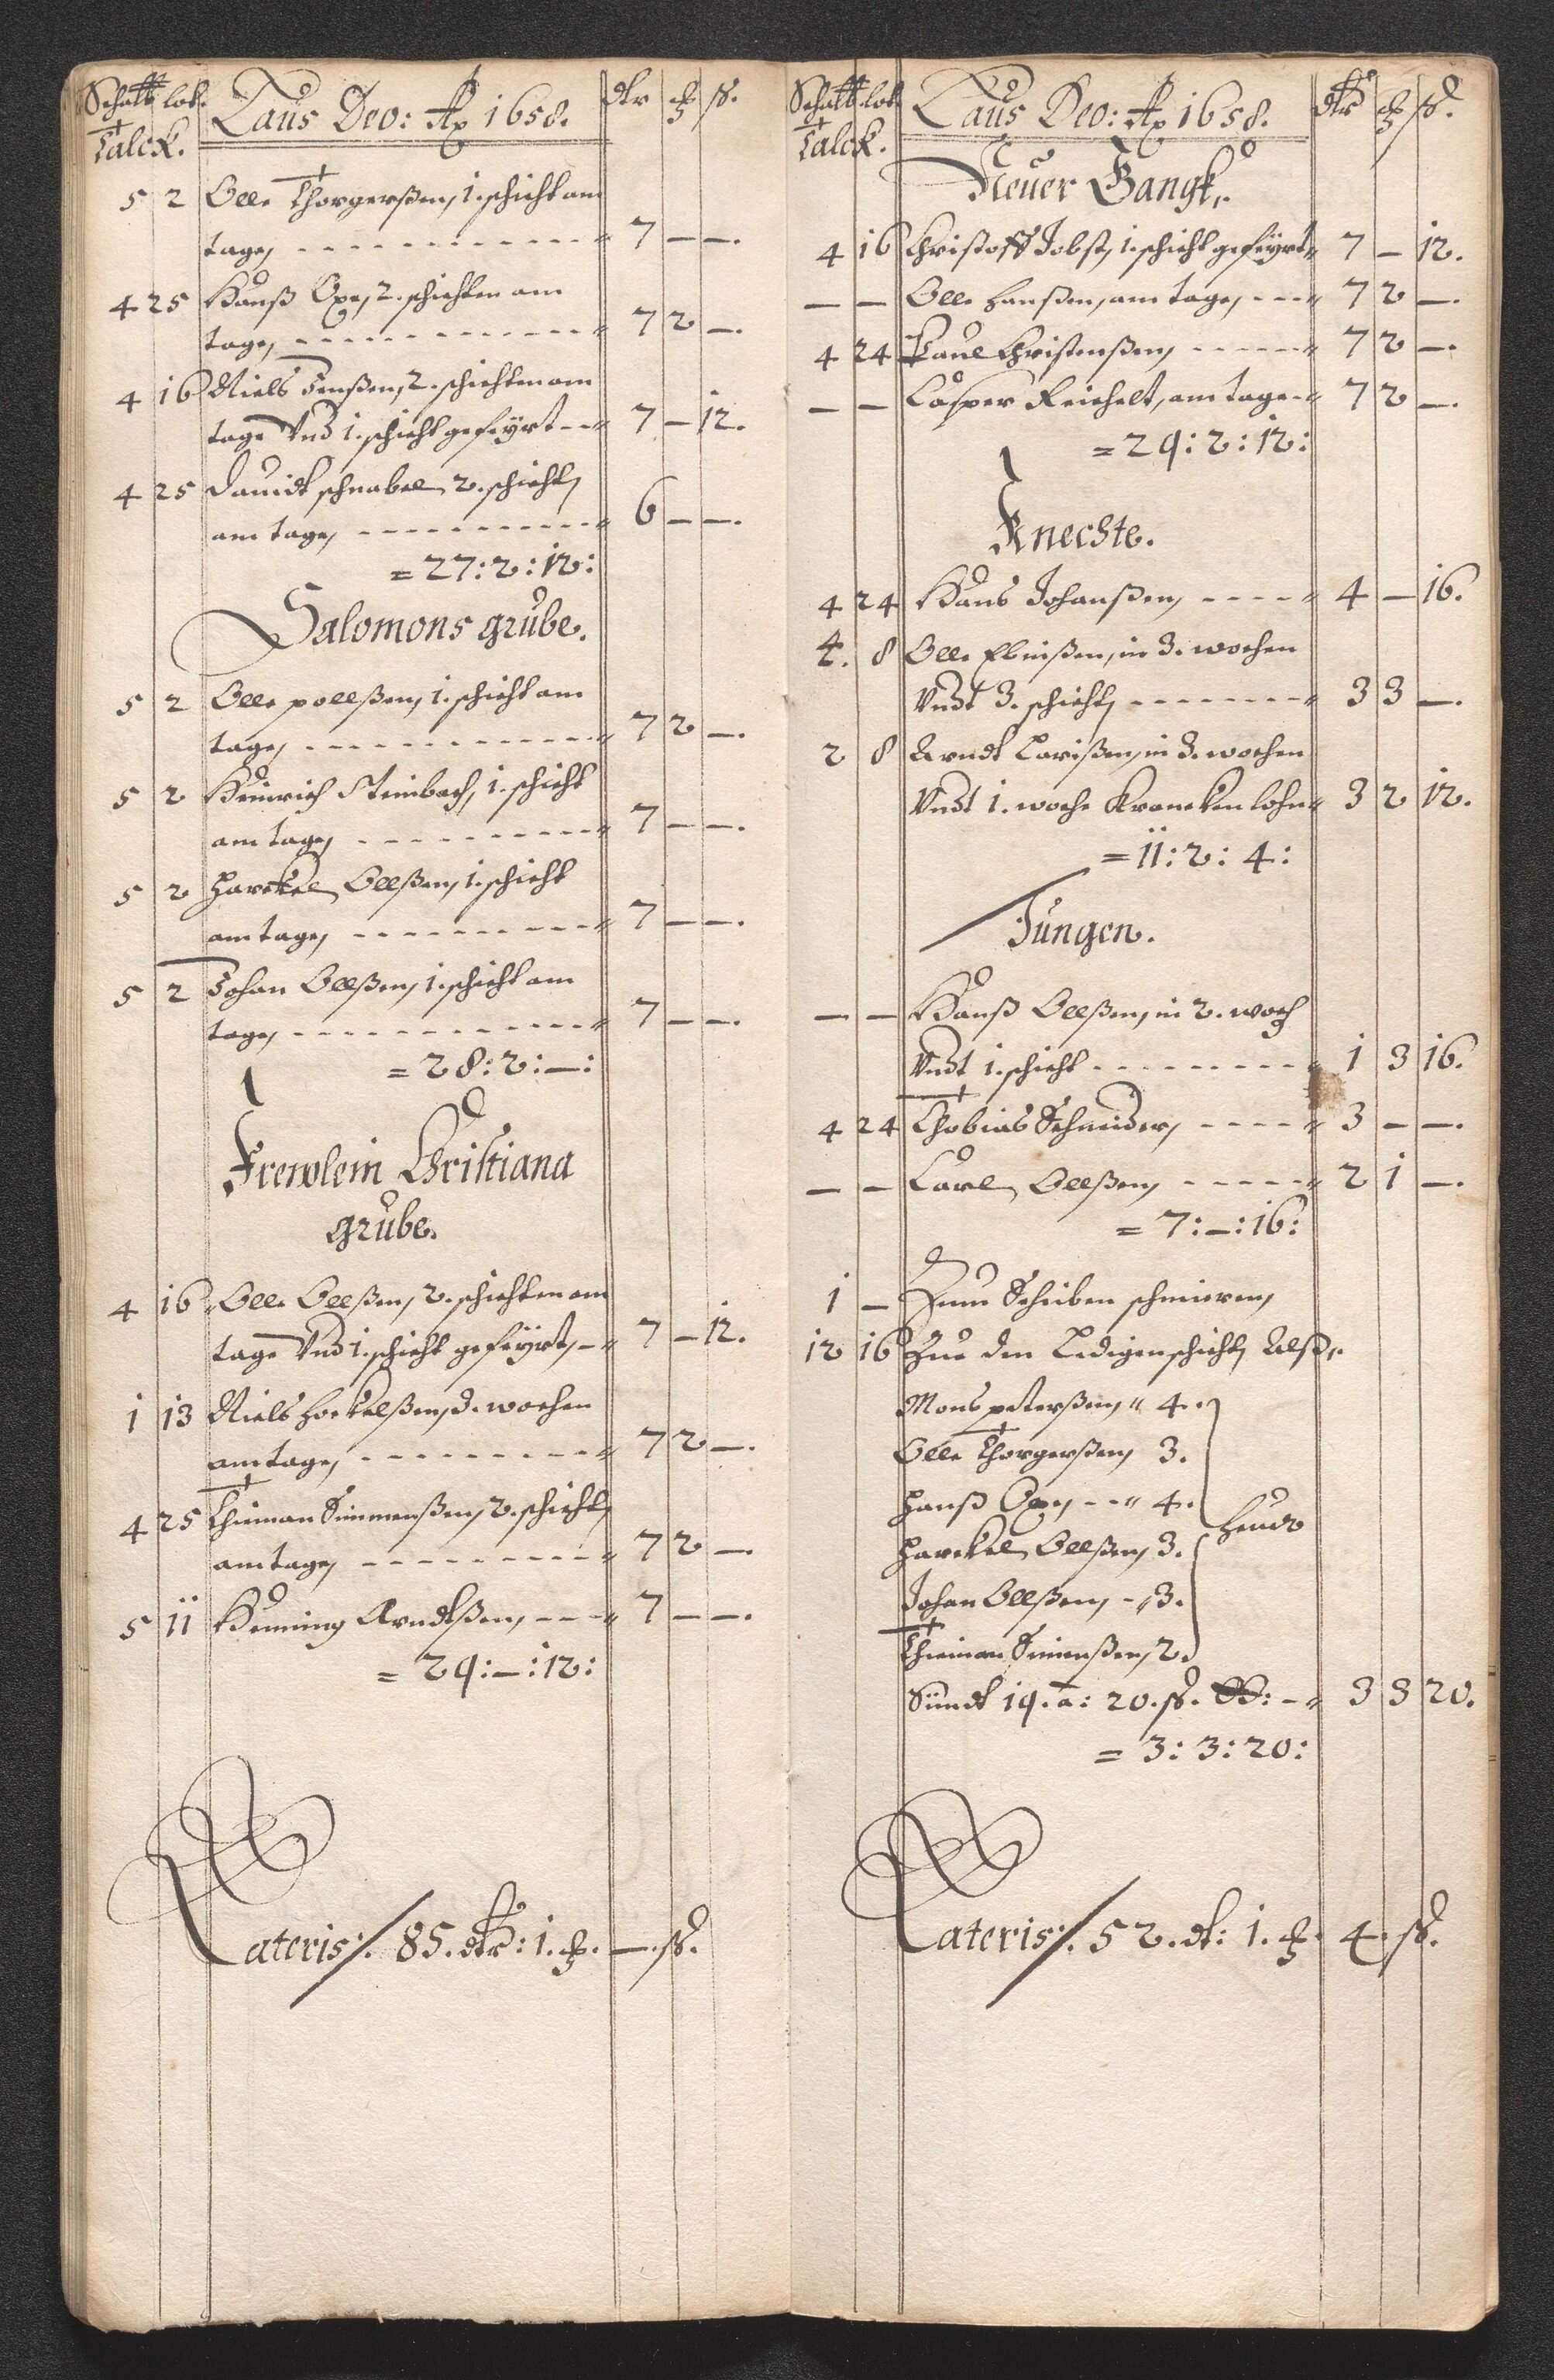 Schiff℔ lod. Laus Deo: Ao 1658. dlr ort ß.
Talck.
5 2 Olle Thorgerßen, 1. schicht am
tage, 7 — —.
4 25 Hanß Oxe, 2. schichten am
tage, 7 2 —.
4 16 Niels Jenßen, 2. schichten am
tage Vnd 1. schicht gefeyrt 7 — 12.
4 25 Dauidt schnabel, 2. schicht,
am tage, 6 — —.
= 27: 2: 12:
Salomons grube.
5 2 Olle pollßen, 1. schicht am
tage, 7 2 —.
5 2 Heinrich Steinbach, 1. schicht
am tage, 7 — —.
5 2 Harckel Ollßen, 1. schicht
am tage, 7 — —.
5 2 Johan Ollßen, 1. schicht am
tage, 7 — —.
= 28: 2: —:
Frewlein Christiana
grube.
4 16 Olle Ollßen, 2. schichten am
tage Vnd 1. schicht gefeyrt, 7 — 12.
1 13 Niels 3. wochen
am tage, 7 2 —.
4 25 Thieman Simmenßen, 2. schicht,
am tage, 7 2 —.
5 11 Henning Arndtßen, 7 — —.
= 29: —: 12:
Lateris:/. 85. dlr: 1. ort. — ß.
Schiff℔ lod Laus Deo: Ao 1658. dlr ort ß.
Talck.
Neuer Gangk.
4 16 Christoff Jobst, 1. schicht gefeyrt 7 — 12.
— — Olle Hanßen, am tage, 7 2 —.
4 24 Paul Christenßen, 7 2 —.
— — Casper Reichelt, am tage 7 2 —.
= 29: 2: 12:
Knechte.
4 24 Hans Johanßen, 4 — 16.
2. 8 Olle in 3. wochen
Vndt 3. schicht, 3 3 —.
2 8 Arndt Larißen, in 3. wochen
Vndt 1. woche Krancken lohn 3 2 12.
= 11: 2: 4:
Jungen.
— — Hanß Ollßen, in 2. woch
Vndt 1. schicht 1 3 16.
4 24 Thobias Schneider, 3 — —.
— — Carl Ollßen, 2 1 —.
= 7: —: 16:
1 — Zum Scheiben schmieren,
12 16 Zue den Ledigenschicht, Alß,
Mons peterßen, 4.
Olle Thorgerßen, 3.
Hanß Oxe, 4.
Harckel Ollßen, 3.
Johan Ollßen, 3.
Thieman Simenßen, 2.
Sündt 19. a: 20. ß. 3 3 20.
= 3: 3: 20:
Lateris:/. 52. dlr: 1. ort. 4. ß.